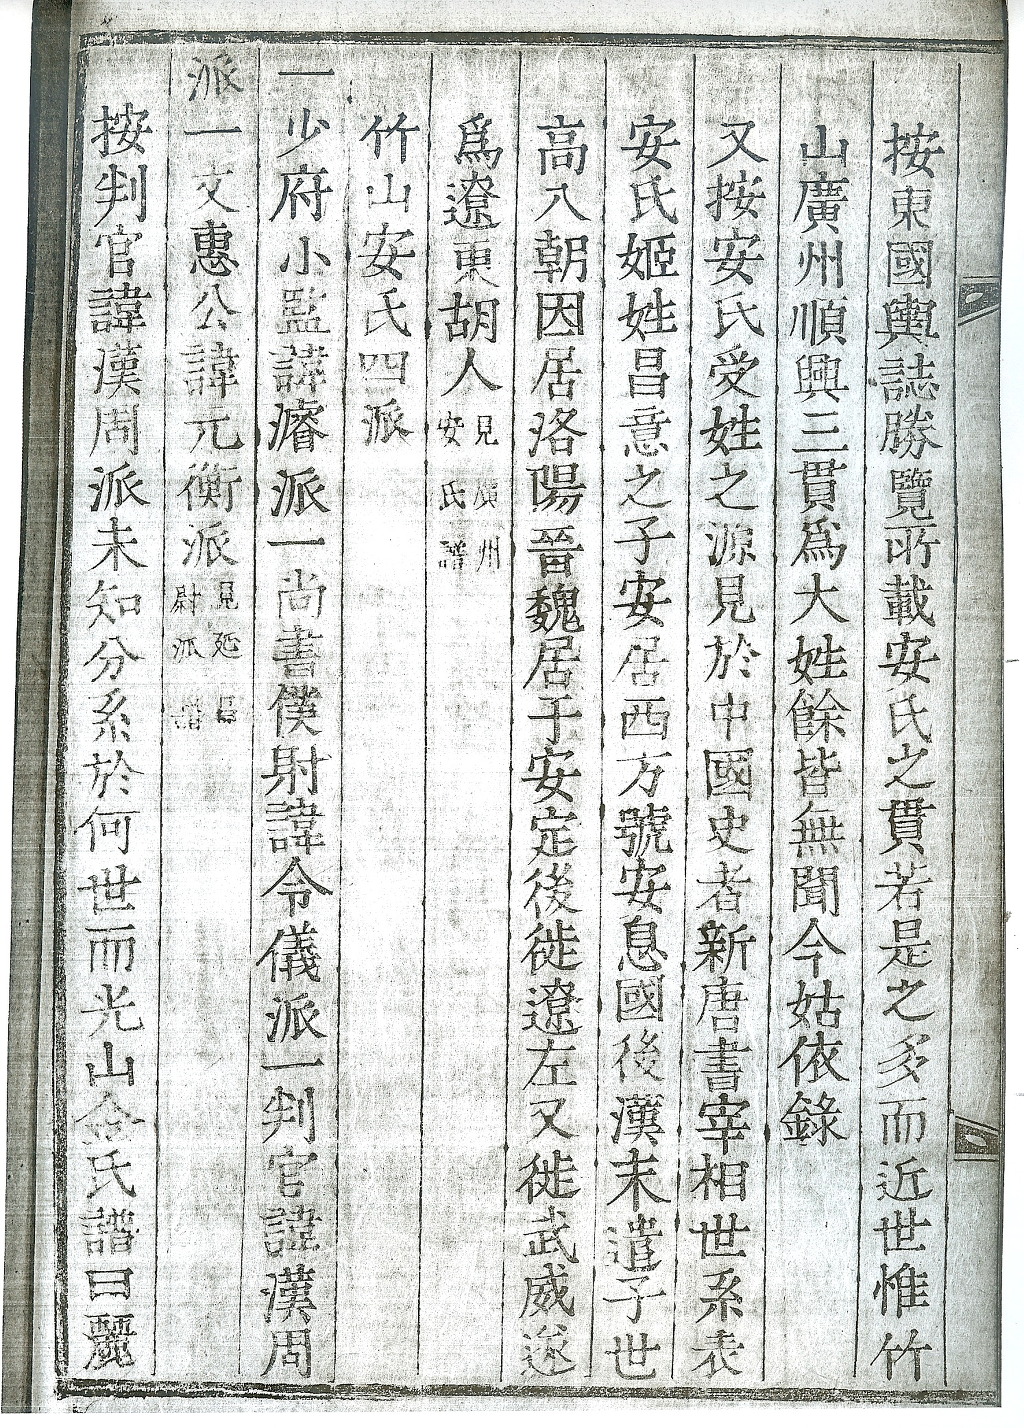 按東國輿誌勝覽所載安氏之貫若是之多而近世惟竹
山廣州順興三貫爲大姓餘皆無聞今姑依錄
又按安氏受姓之源見於中國史者新唐書宰相世系表
安氏姬姓昌意之子安居西方號安息國後漢末遣子世
高入朝因居洛陽晉魏居于安定後徙遼左又徙武威遂
爲遼東胡人見廣州安氏譜
竹山安氏四派
一少府小監諱濬派一尚書僕射諱令儀派一判官諱漢周
派一文惠公諱元衡派見延昌尉派譜
按判官諱漢周派未知分系於何世而光山金氏譜曰麗